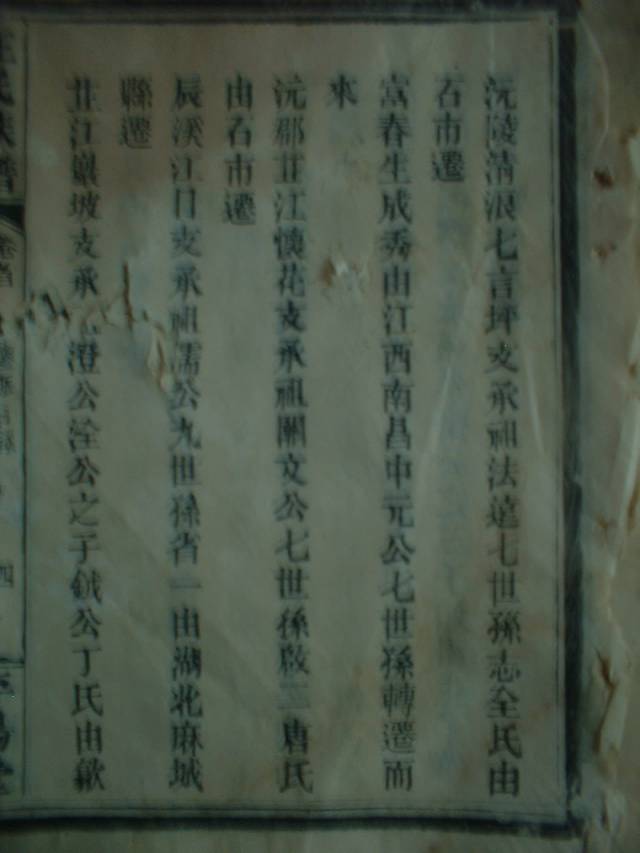 沅陵清浪七言坪支承祖法達七世孫志全民由
石市遷
富春生成秀由江西南昌中元公七世孫轉遷而
來
沅郡芷江懷花支承祖開文公七世孫啟三唐氏
由石市遷
辰溪江口支承祖濡公九世孫省一由湖北麻城
縣遷
芷江巖坡支承 澄公洤公之子鉞公丁氏由歙
氏族譜
卷首
四